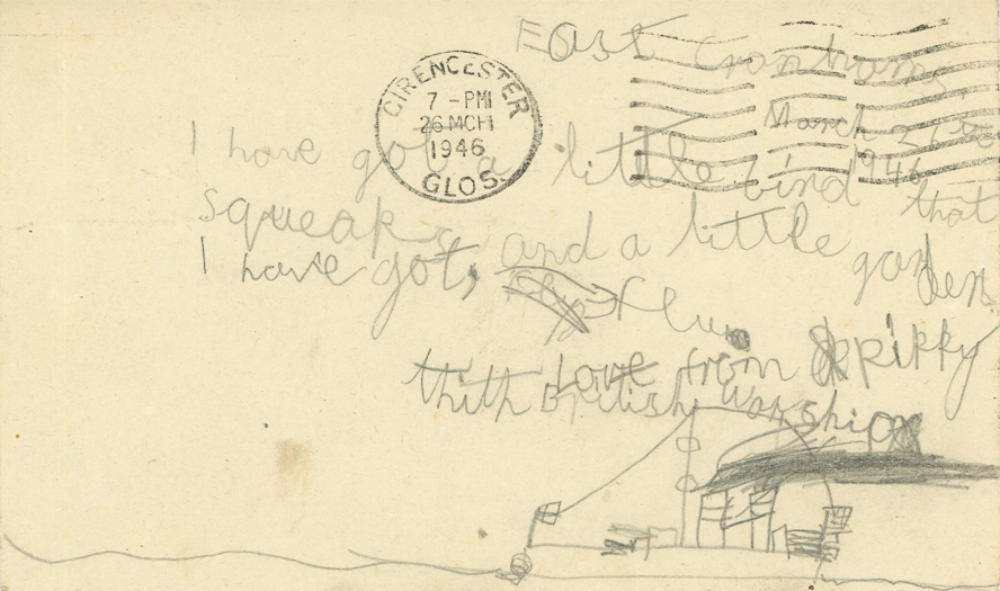 East
CIRENCESTER
7 - PM
26 MCH
1946
GLOS.
March 26
1946
I have got a little bird that
squeaks and a little garden
I have got flu
Love from
thith British Warship